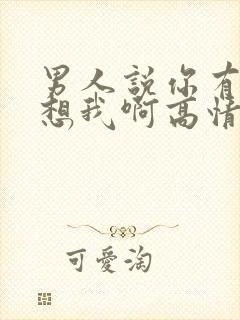 男人說你有
想我啊高情
可愛淘